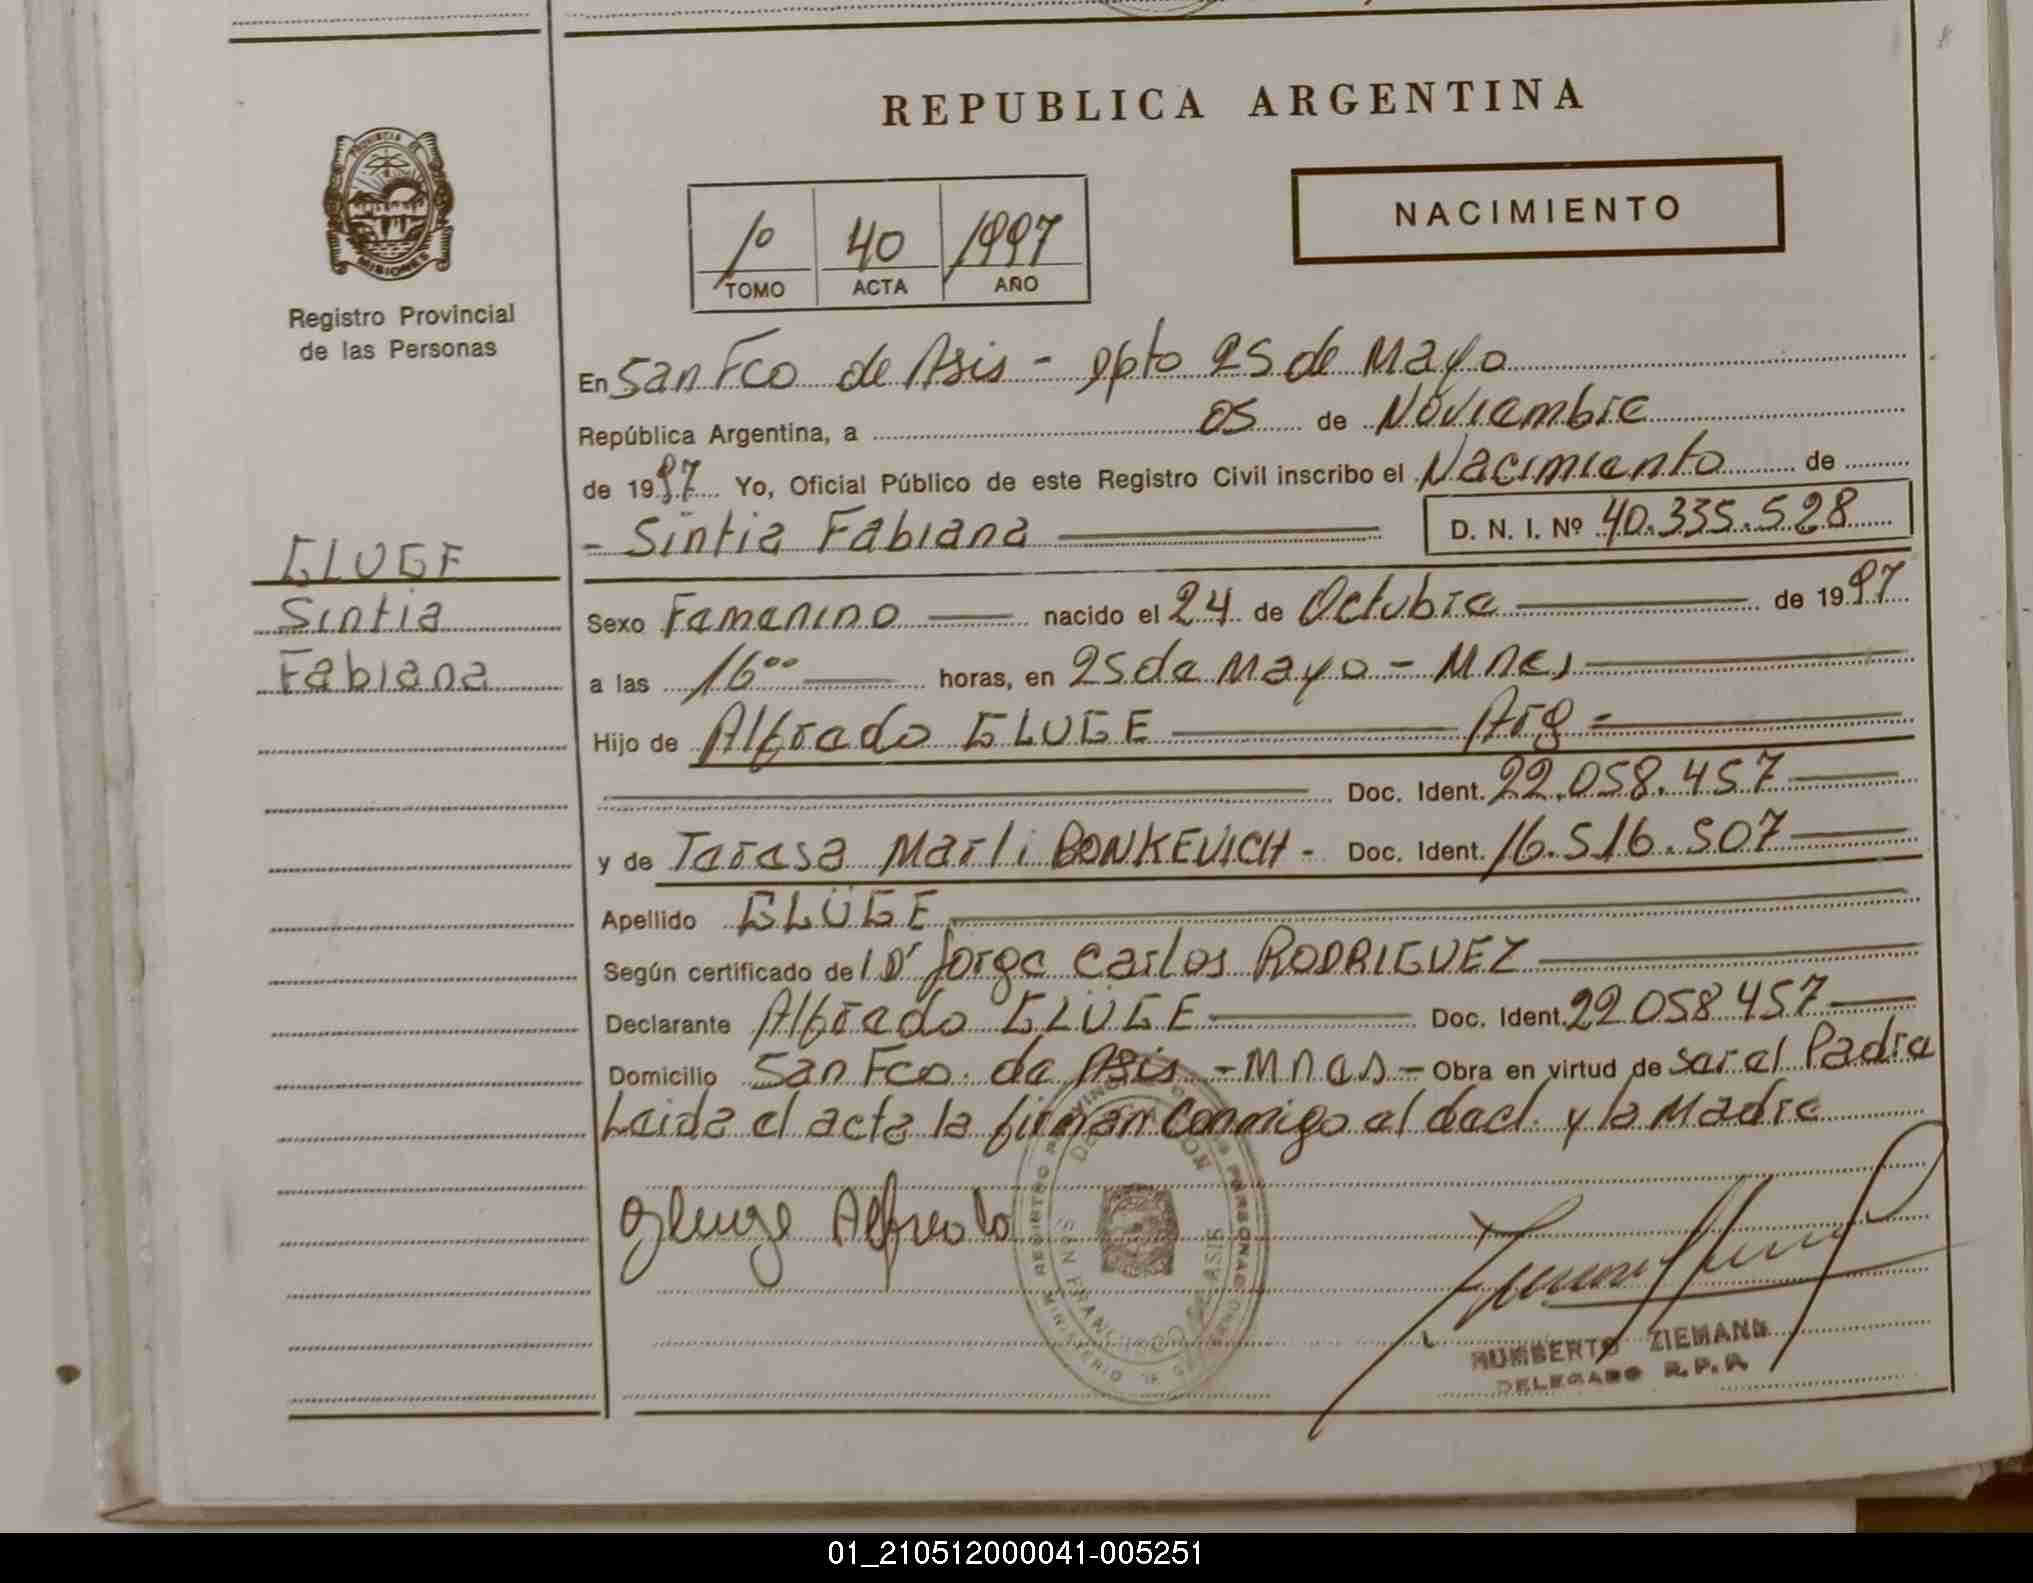 REPUBLICA ARGENTINA
NACIMIENTO
PROVINCIA DE
MISIONES
Registro Provincial
de las Personas
1º 40 1997
TOMO ACTA AÑO
En San Fco de Asis - Dpto 25 de Mayo
República Argentina, a 05 de Noviembre
de 1997 Yo, Oficial Público de este Registro Civil inscribo el Nacimiento de
- Sintia Fabiana D. N. I. Nº 40.335.528
GLUGE
Sintia
Fabiana
Sexo Femenino nacido el 24 de Octubre de 1997
a las 16⁰⁰ horas, en 25 de Mayo - Mnes
Hijo de Alfredo GLUGE Arg -
Doc. Ident. 22.058.457
y de Teresa Marli BONKEVICH - Doc. Ident. 16.516.507
Apellido GLÜGE
Según certificado del Dr Jorge Carlos RODRIGUEZ
Declarante Alfredo GLÜGE Doc. Ident. 22 058 457
Domicilio San Fco. de Asis - Mnes - Obra en virtud de ser el Padre
Leida el acta la firman conmigo el decl. y la Madre
Gluge Alfredo
REGISTRO PROVINCIAL DE LAS PERSONAS
DELEGACION
SAN FRANCISCO DE ASIS
MINISTERIO DE GOBIERNO
HUMBERTO ZIEMANN
DELEGADO R. P. P.
01_210512000041-005251